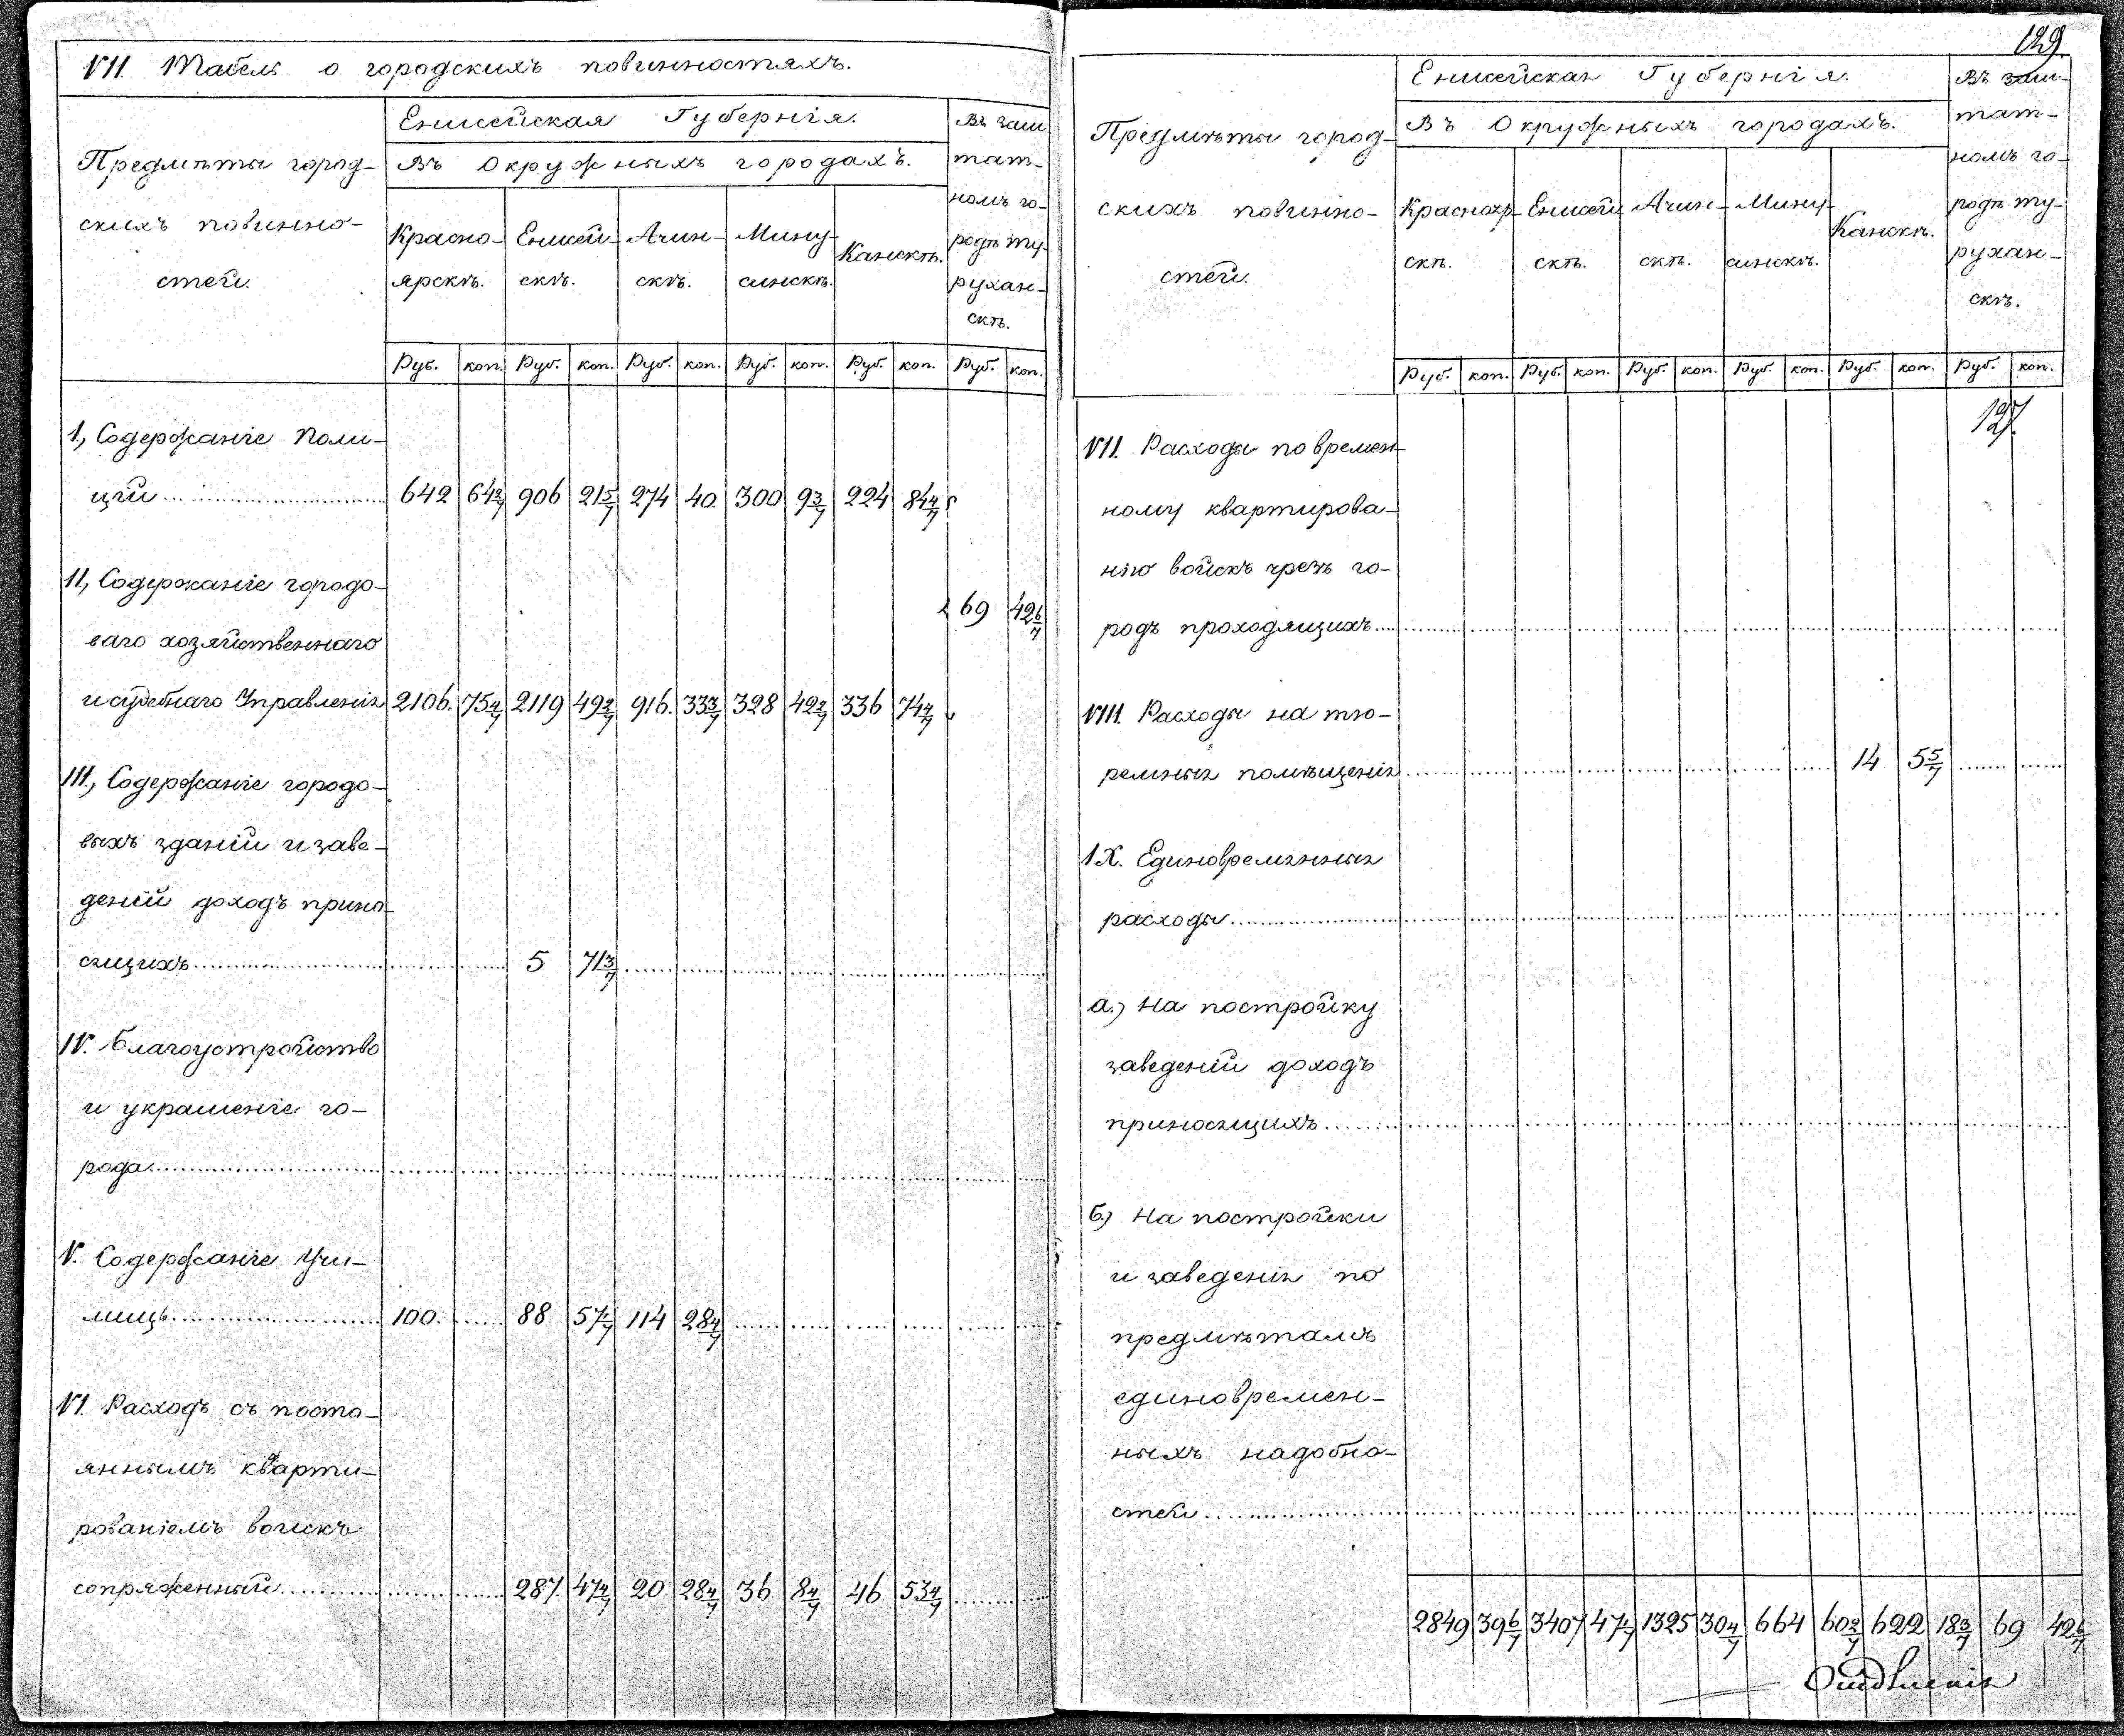 VII. Табель о городскихъ повинностяхъ.
Предмѣты город-
скихъ повинно-
стей.
Енисейская Губернія.
Въ Окружныхъ городахъ.
Красно-
ярскѣ.
Енисей-
скѣ.
Ачин-
скѣ.
Мину-
синскѣ.
Канскѣ.
Въ заш-
тат-
номъ го-
родѣ Ту-
рухан-
скѣ.
Руб. коп. Руб. коп. Руб. коп. Руб. коп. Руб. коп. Руб. коп.
I., Содержаніе Поли-
ціи 642 64 2/7 906 21 5/7 274 40 300 9 3/7 224 84 4/7
II, Содержаніе городо-
ваго хозяйственнаго 69 42 6/7
и судебнаго Управленія 2106. 75 4/7 2119 49 2/7 916. 33 3/7 328 42 2/7 336 74 4/7
III., Содержаніе городо-
выхъ зданій и заве-
деній доходъ прино-
сящихъ 5 71 3/7
IV. Благоустройство
и украшеніе го-
рода
V. Содержаніе Учи-
лищь 100. 88 57 1/7 114 28 4/7
VI. Расходъ съ посто-
яннымъ кварти-
рованіемъ войскъ
сопряженный 287. 47 4/7 20 28 4/7 36 8 4/7 46 53 4/7
129
Предмѣты город-
скихъ повинно-
стей.
Енисейская Губернія.
Въ Окружныхъ городахъ.
Краснояр-
скѣ.
Енисей-
скѣ.
Ачин-
скѣ.
Мину-
синскѣ.
Канскѣ.
Въ заш-
тат-
номъ го-
родѣ Ту-
рухан-
скѣ.
Руб. коп. Руб. коп. Руб. коп. Руб. коп. Руб. коп. Руб. коп.
127.
VII. Расходы по времен-
ному квартирова-
нію войскъ чрезъ го-
родъ проходящихъ
VIII. Расходы на тю-
ремныя помѣщенія 14 5 5/7
IX. Единовременныя
расходы
а.) На постройку
заведеній доходъ
приносящихъ
б.) На постройки
и заведенія по
предмѣтамъ
единовремен-
ныхъ надобно-
стей
2849 39 6/7 3407 47 1/7 1325 30 4/7 664 60 2/7 622 18 3/7 69 42 6/7